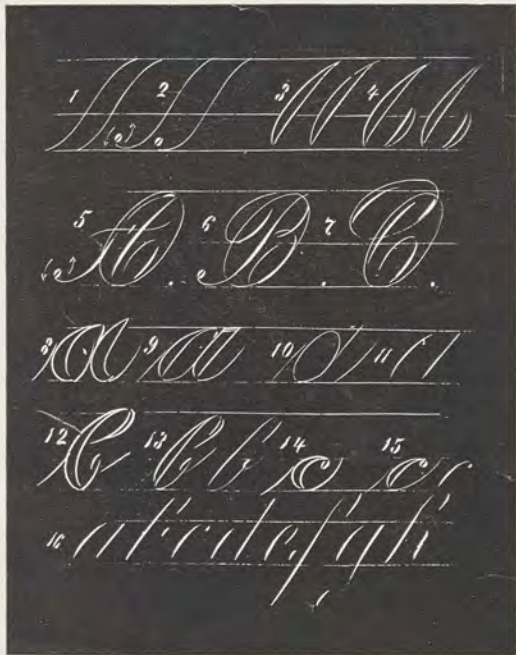 1 2 3 4
5 A. 6 B. 7 C.
8 a 9 a 10 11
12 b 13 b 14 c 15 c
16 a b c d e f g h